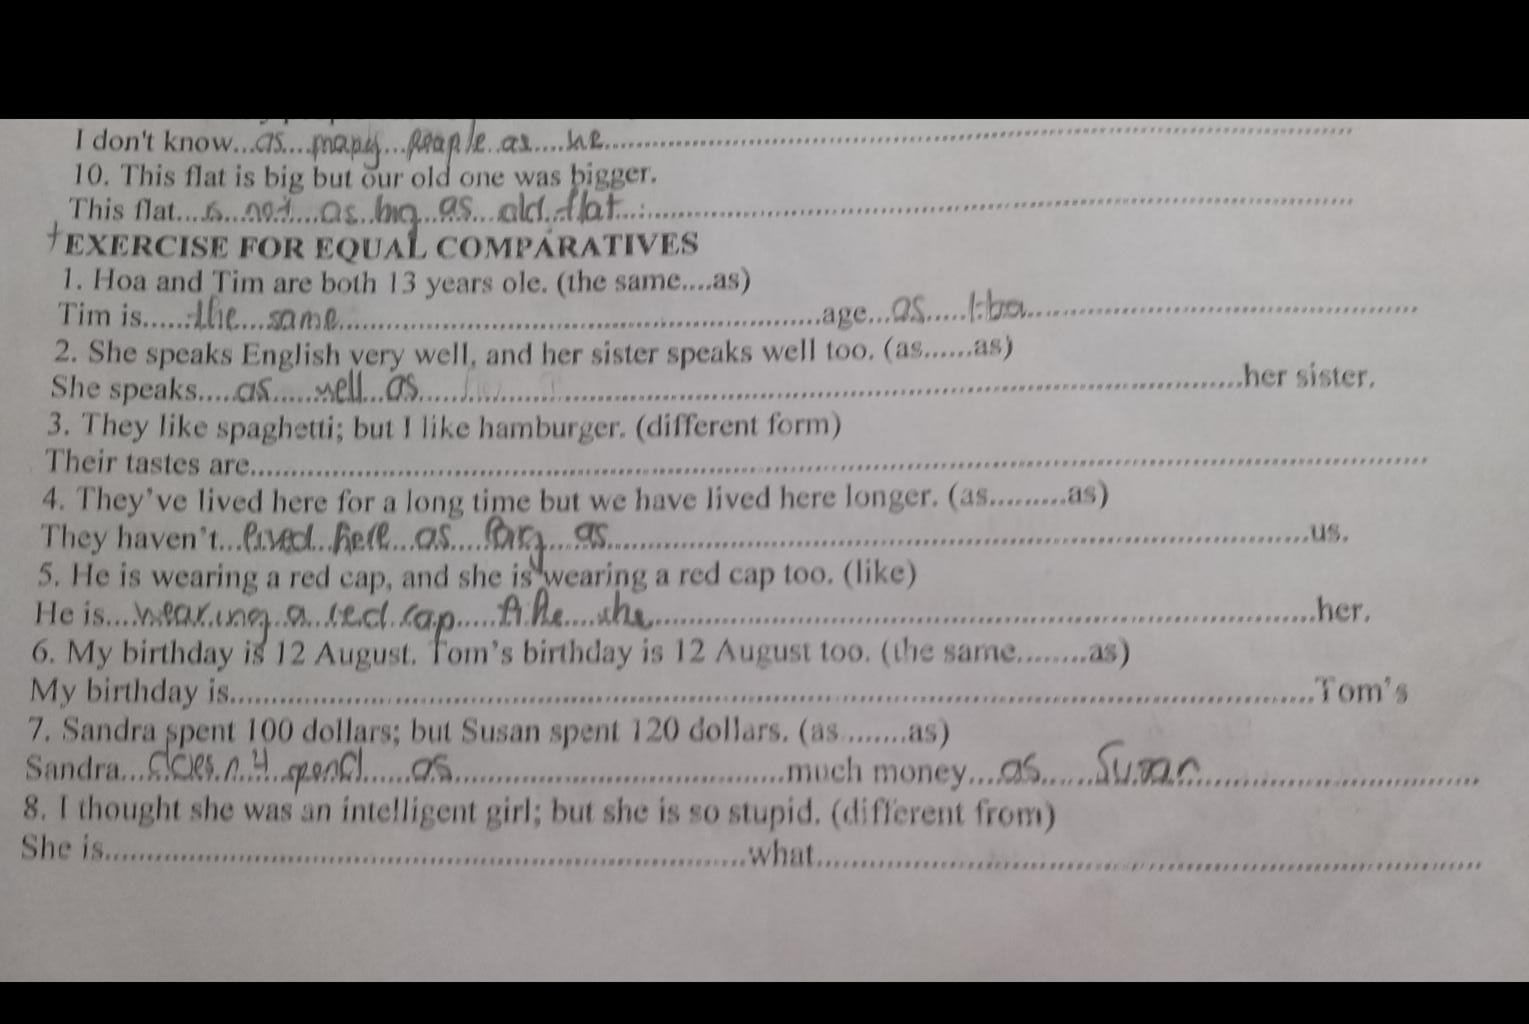 I don't know...as....many...people..as....he..........
10. This flat is big but our old one was bigger.
This flat...is...not...as..big...as...old..flat..........
+EXERCISE FOR EQUAL COMPARATIVES
1. Hoa and Tim are both 13 years ole. (the same....as)
Tim is......the...same..........age...as.....Hoa..........
2. She speaks English very well, and her sister speaks well too. (as......as)
She speaks.....as......well...as..........her sister.
3. They like spaghetti; but I like hamburger. (different form)
Their tastes are..........
4. They've lived here for a long time but we have lived here longer. (as.........as)
They haven't...lived..here...as....long...as..........us.
5. He is wearing a red cap, and she is wearing a red cap too. (like)
He is...wearing..a..red..cap.....like....she..........her.
6. My birthday is 12 August. Tom's birthday is 12 August too. (the same........as)
My birthday is..........Tom's
7. Sandra spent 100 dollars; but Susan spent 120 dollars. (as........as)
Sandra...doesn't...spend......as..........much money....as......Susan..........
8. I thought she was an intelligent girl; but she is so stupid. (different from)
She is..........what..........